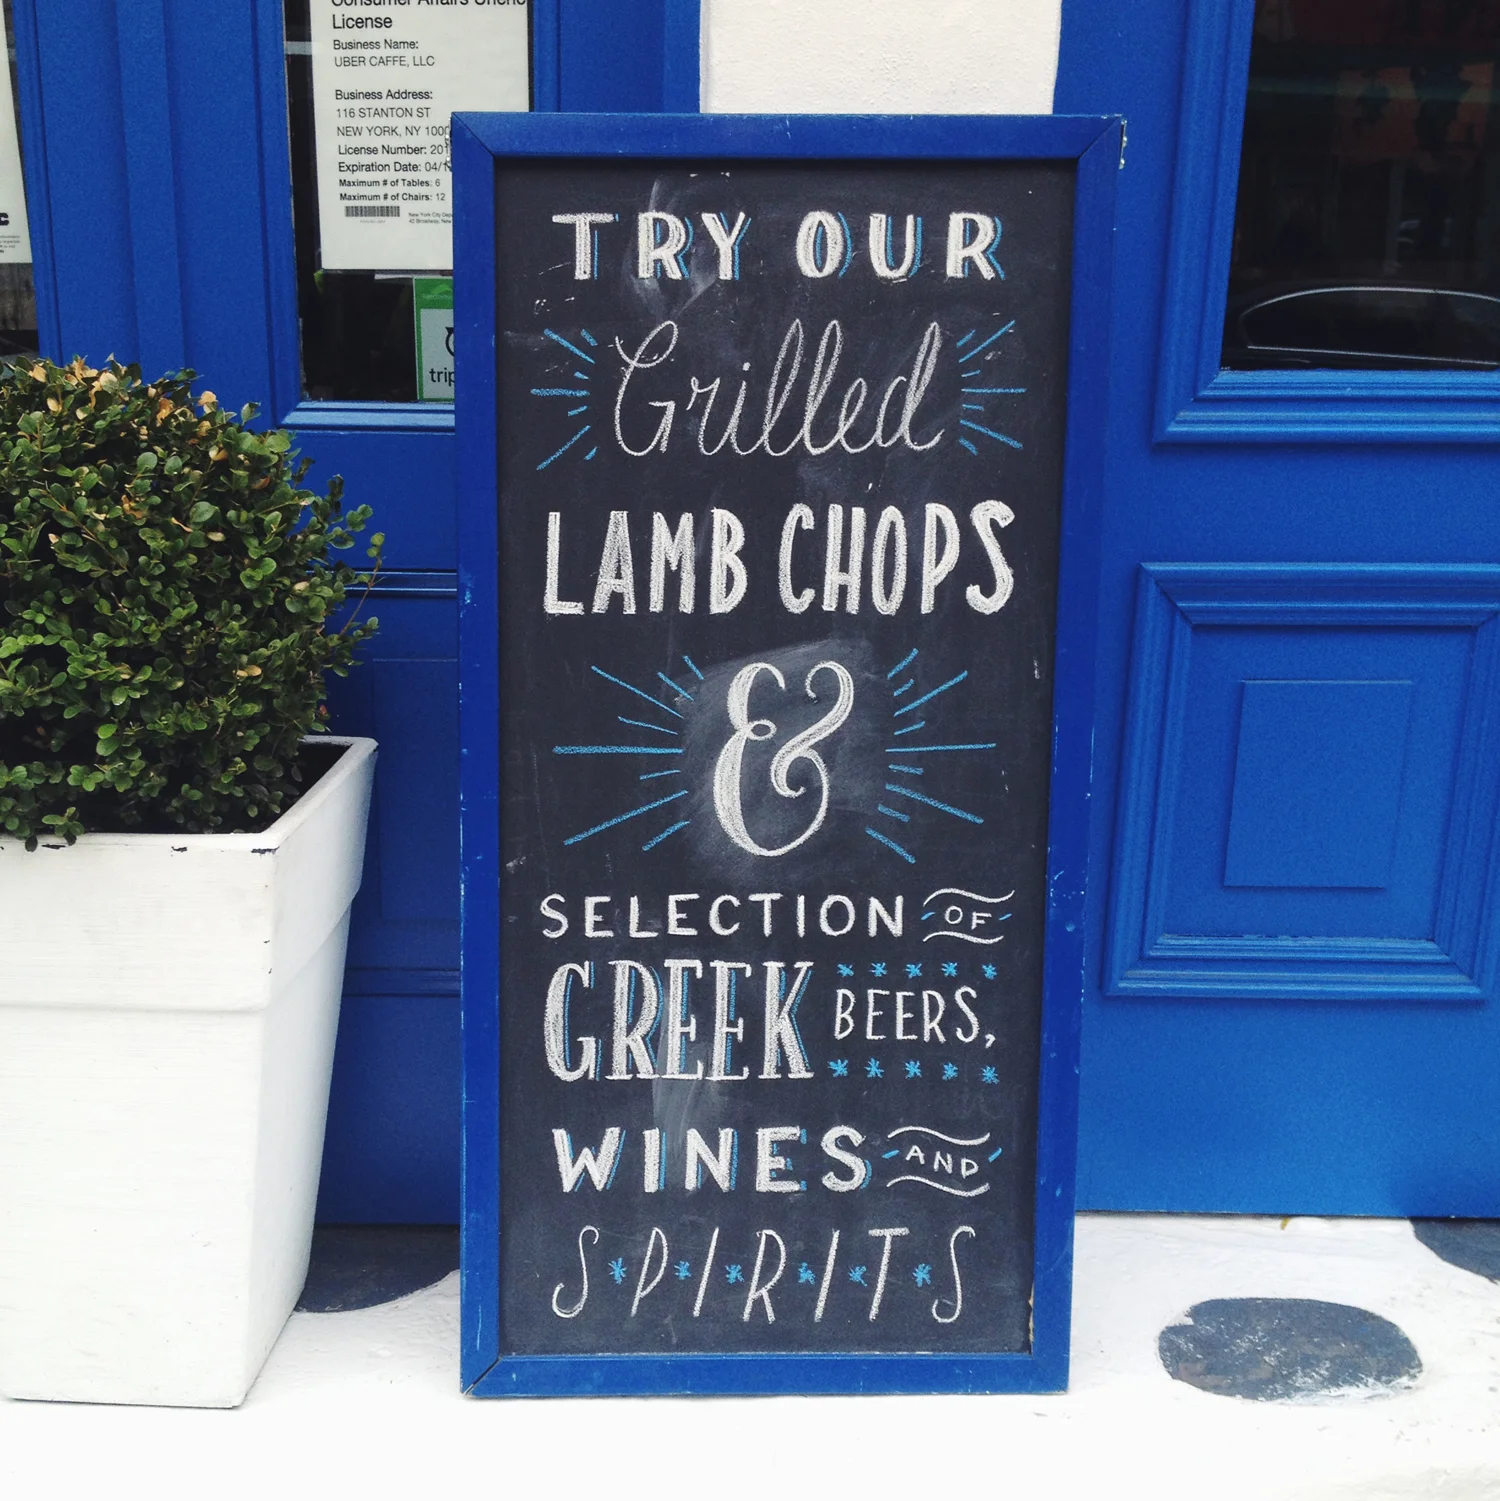 Consumer Affairs
License
Business Name:
UBER CAFFE, LLC
Business Address:
116 STANTON ST
NEW YORK, NY 1000
License Number: 201
Expiration Date: 04/1
Maximum # of Tables: 6
Maximum # of Chairs: 12
New York City
42 Broadway, New
trip
TRY OUR
Grilled
LAMB CHOPS
&
SELECTION OF
GREEK BEERS,
WINES AND
SPIRITS